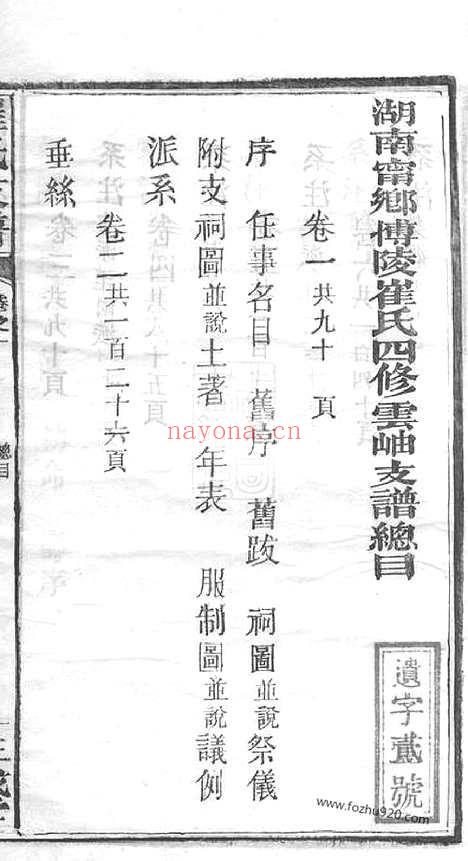 湖南甯鄉博陵崔氏四修雲岫支譜總目
遺字貳號
卷一共九十　頁
序　任事名目　舊序　舊跋　祠圖並說祭儀
附支祠圖並說土著　年表　服制圖並說議例
派系
卷二共一百二十六頁
垂絲
卷之一
總目
nayona.cn
www.fozhu920.com